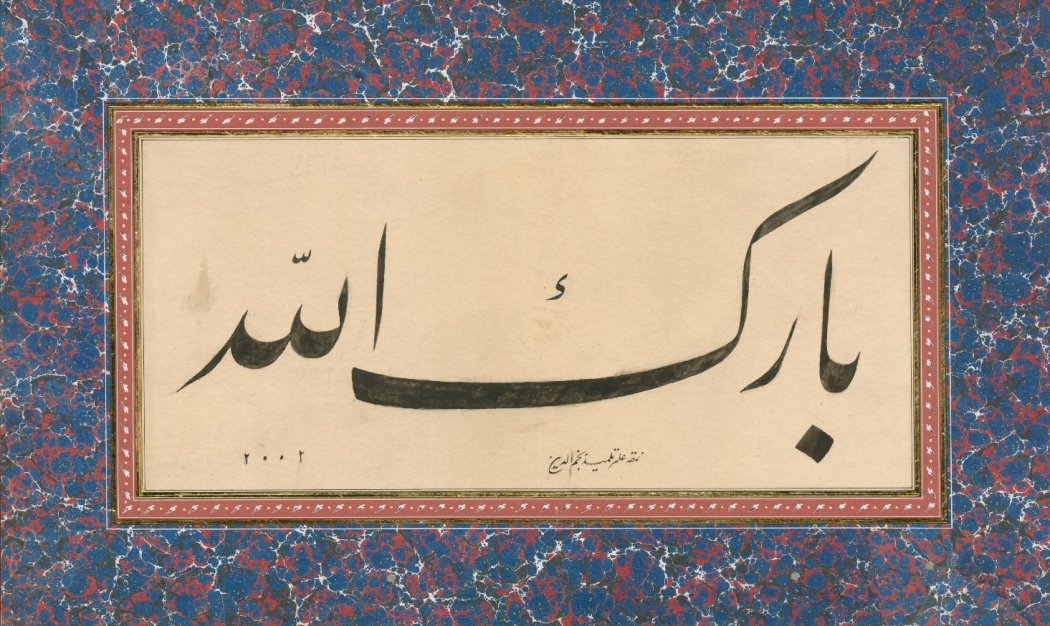 بارك الله
نمقه علي تلميذ نجم الدين
٢٠٠٢